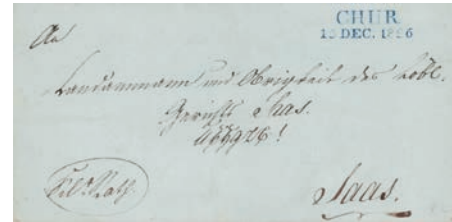 CHUR
15 DEC. 1856
An
Landammann und Obrigkeit des Lobl.
Gerichts Saas.
Saas.